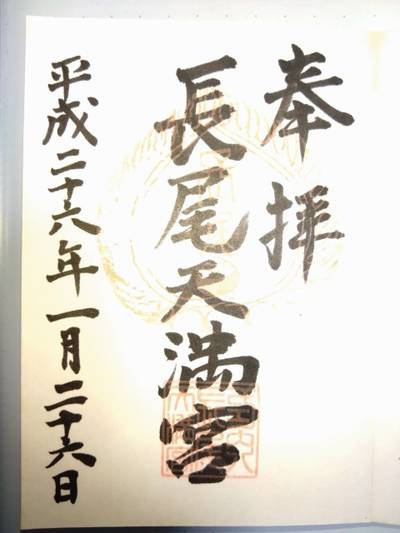 奉拝
長尾天満宮
平成二十六年一月二十六日